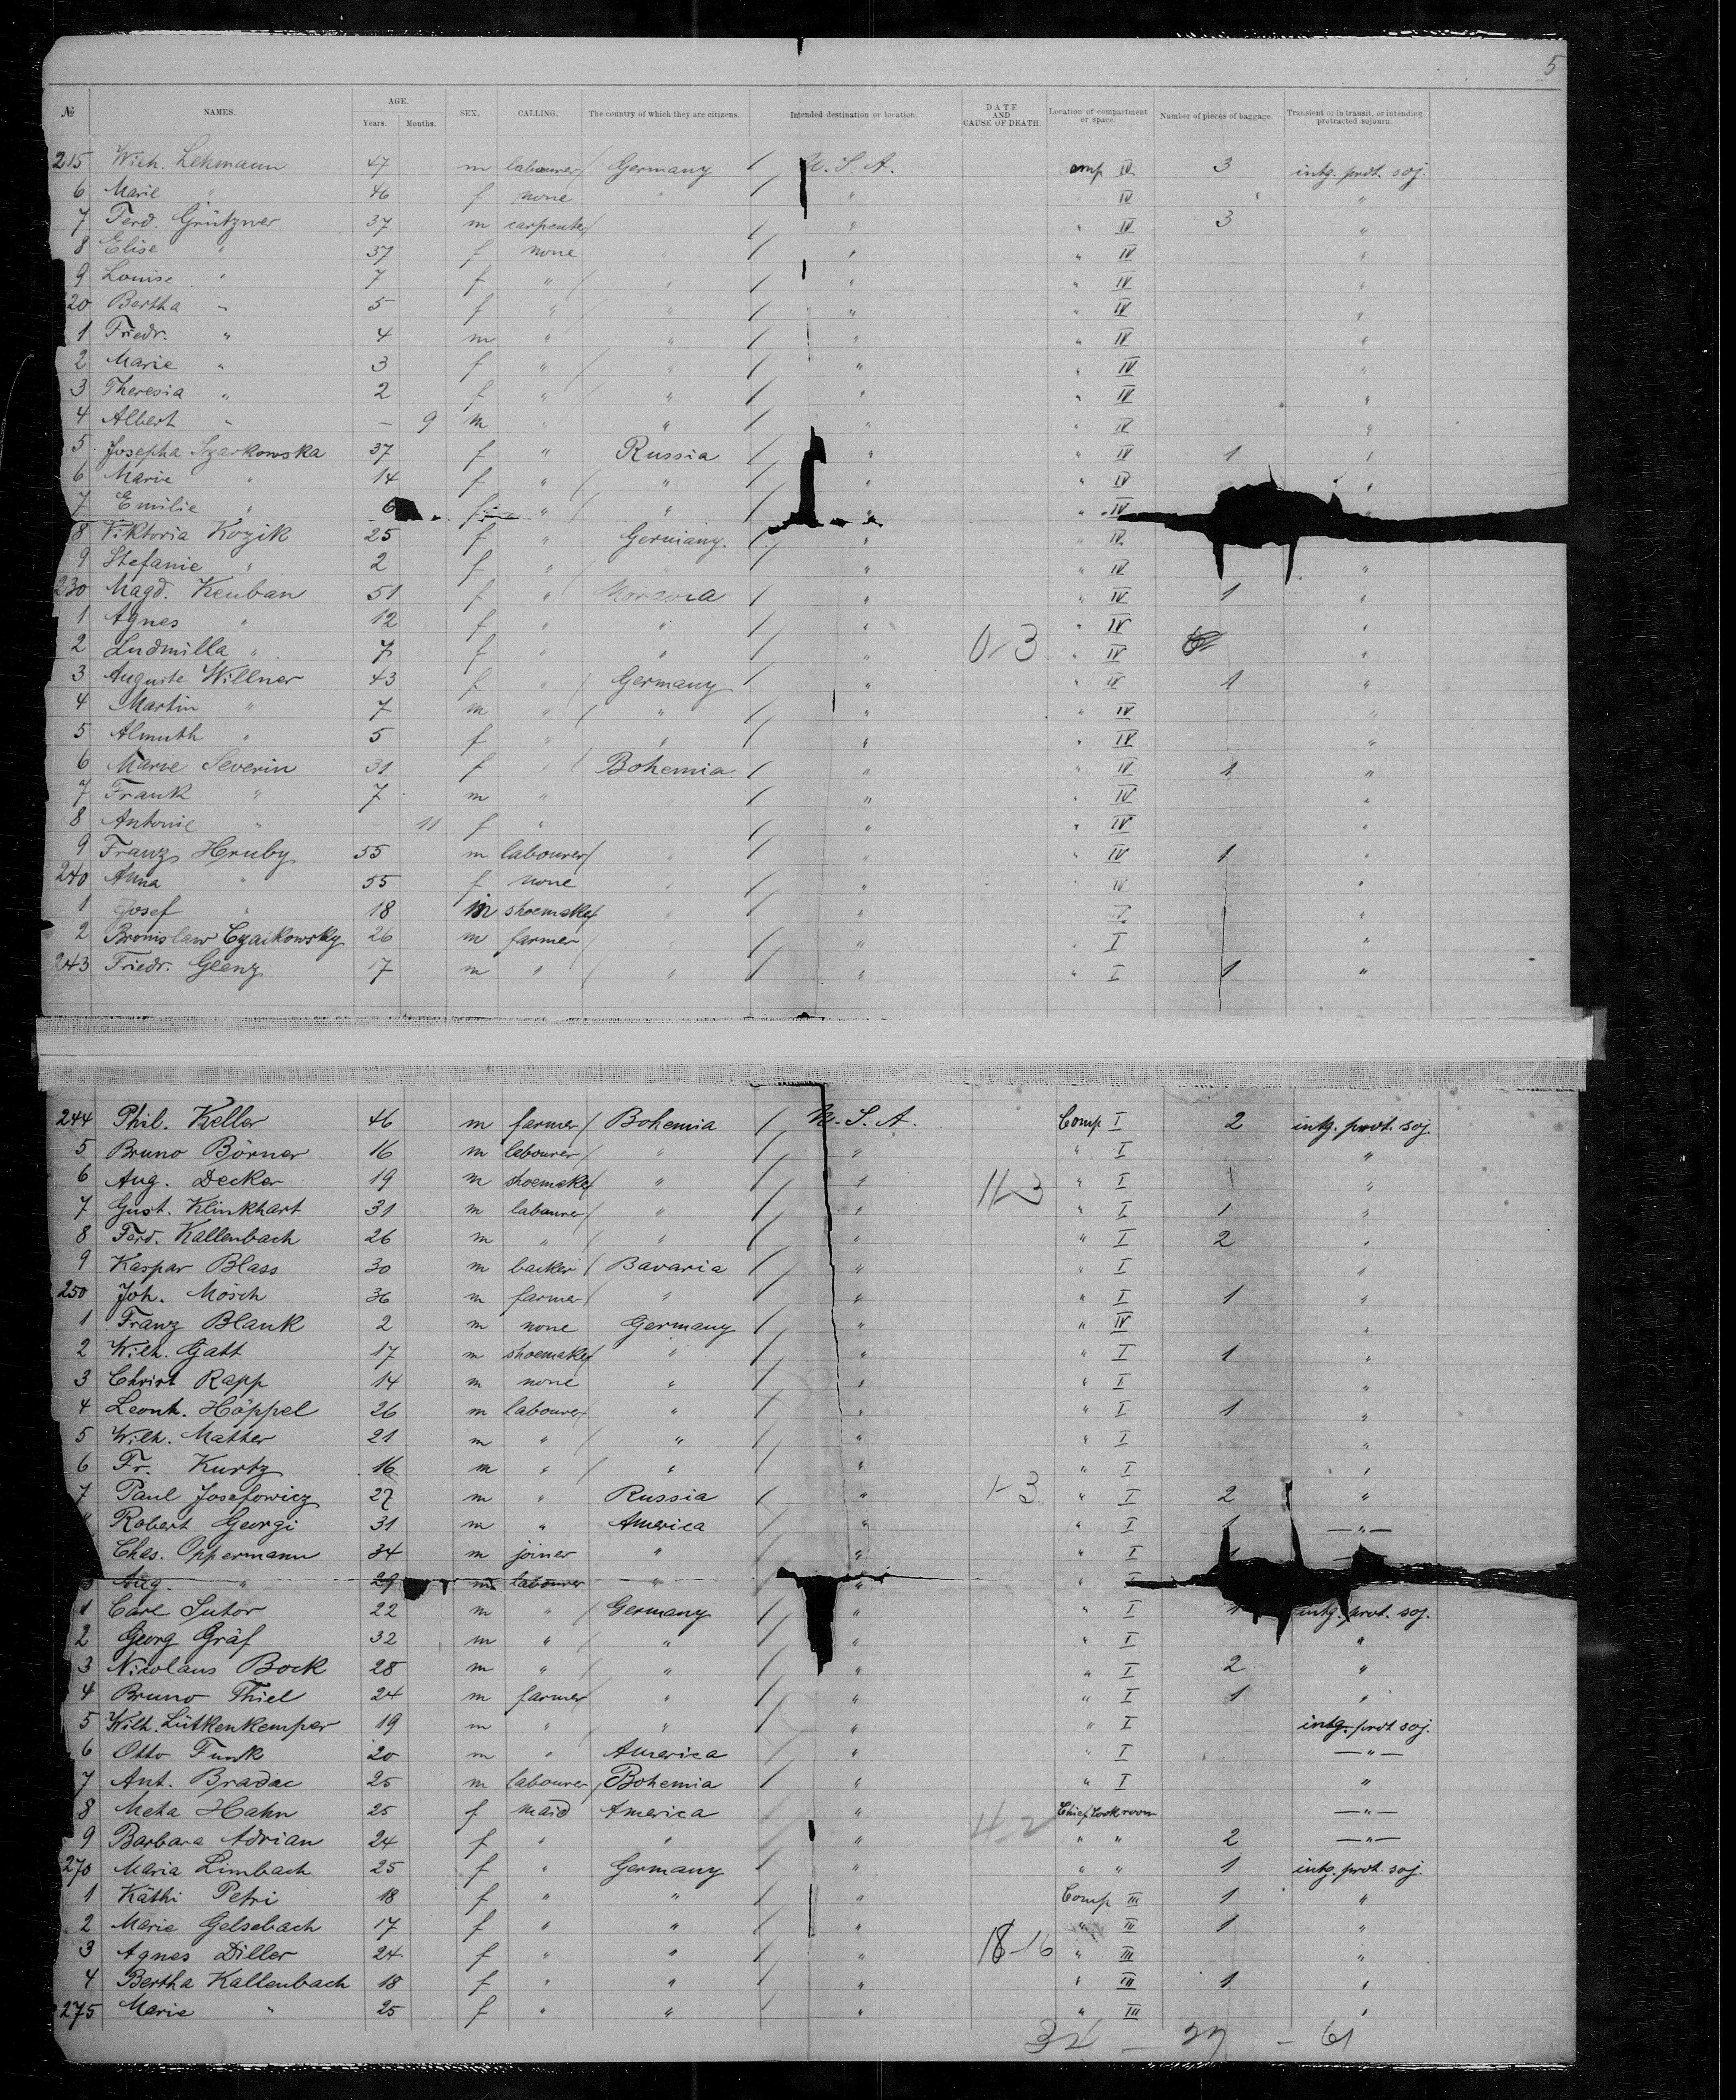 5
№ NAMES. AGE. Years. Months. SEX. CALLING. The country of which they are citizens. Intended destination or location. DATE AND CAUSE OF DEATH. Location of compartment or space. Number of pieces of baggage. Transient or in transit, or intending protracted sojourn.
215 Wilh. Lehmann 47 m labourer / Germany / U. S. A. omp IV 3 intg. prot. soj.
6 Marie " 46 f none " / " IV "
7 Ferd. Grützner 37 m carpenter / / " " IV 3 "
8 Elise " 37 f none " / " " IV "
9 Louise " 7 f " / " / " " IV "
20 Bertha " 5 f " / " / " " IV "
1 Friedr. " 4 m " " / " " IV "
2 Marie " 3 f " / " / " " IV "
3 Theresia " 2 f " / " / " " IV "
4 Albert " — 9 m " " / " " IV "
5 Josepha Szarkowska 37 f " Russia / " " IV 1 "
6 Marie " 14 f " / " / " " IV "
7 Emilie " 6 f " / " / " " IV
8 Viktoria Kozik 25 f " Germany / " " IV
9 Stefanie " 2 f " / " / " " IV "
230 Magd. Keuban 51 f " Moravia / " " IV 1 "
1 Agnes " 12 f " " / " " IV "
2 Ludmilla " 7 f " " / " 0-3 " IV "
3 Auguste Willner 43 f " / Germany / " " IV 1 "
4 Martin " 7 m " / " / " " IV "
5 Almuth " 5 f " / " / " " IV "
6 Marie Severin 31 f " / Bohemia / " " IV 1 "
7 Frank " 7 m " " / " " IV "
8 Antonie " — 11 f " " / " " IV "
9 Franz Hruby 55 m labourer / " / " " IV 1 "
240 Anna " 55 f none " / " " IV "
1 Josef " 18 m shoemaker / " / " IV "
2 Bronislaw Czaikowsky 26 m farmer / " / " " I "
243 Friedr. Glenz 17 m " / " / " " I 1 "
244 Phil. Keller 46 m farmer / Bohemia / U. S. A. Comp I 2 intg. prot. soj.
5 Bruno Börner 16 m labourer / " / " " I "
6 Aug. Decker 19 m shoemaker / " / " 11-3 " I 1 "
7 Gust. Klinkhart 31 m labourer / " / " " I 1 "
8 Ferd. Kallenbach 26 m " / " / " " I 2 "
9 Kaspar Blass 30 m backer / Bavaria / " " I "
250 Joh. Mösch 36 m farmer / " / " " I 1 "
1 Franz Blank 2 m none Germany / " " IV "
2 Wilh. Gatt 17 m shoemaker / " / " " I 1 "
3 Christ Rapp 14 m none " / " " I "
4 Leonh. Höppel 26 m labourer / " / " " I 1 "
5 Wilh. Mather 21 m " / " / " " I "
6 Fr. Kurtz 16 m " / " / " " I "
7 Paul Josefowicz 27 m " Russia / " 1-3 " I 2 "
" Robert Georgi 31 m " America / " " I 1 — " —
Chas. Oppermann 34 m joiner " / " " I
Aug. " 29 m labourer " / " "
1 Carl Sutor 22 m " / Germany / " " I 1 intg. prot. soj.
2 Georg Gräf 32 m " / " / " " I "
3 Nicolaus Bock 28 m " / " / " " I 2 "
4 Bruno Thiel 24 m farmer / " / " " I 1 "
5 Wilh. Lütkenkemper 19 m " / " / " " I intg. prot soj.
6 Otto Funk 20 m " America / " " I — " —
7 Ant. Bradac 25 m labourer / Bohemia / " " I "
8 Meta Hahn 25 f maid America " 4-2 Chief Cook room — " —
9 Barbara Adrian 24 f " " " " " 2 — " —
270 Maria Limbach 25 f " Germany / " " " 1 intg. prot. soj.
1 Käthi Petri 18 f " " / " Comp III 1 "
2 Marie Gelsebach 17 f " " / " " III 1 "
3 Agnes Diller 24 f " " / " 18-16 " III "
4 Bertha Kallenbach 18 f " " / " " III 1 "
275 Marie " 25 f " " / " " III "
32 — 27 — 61